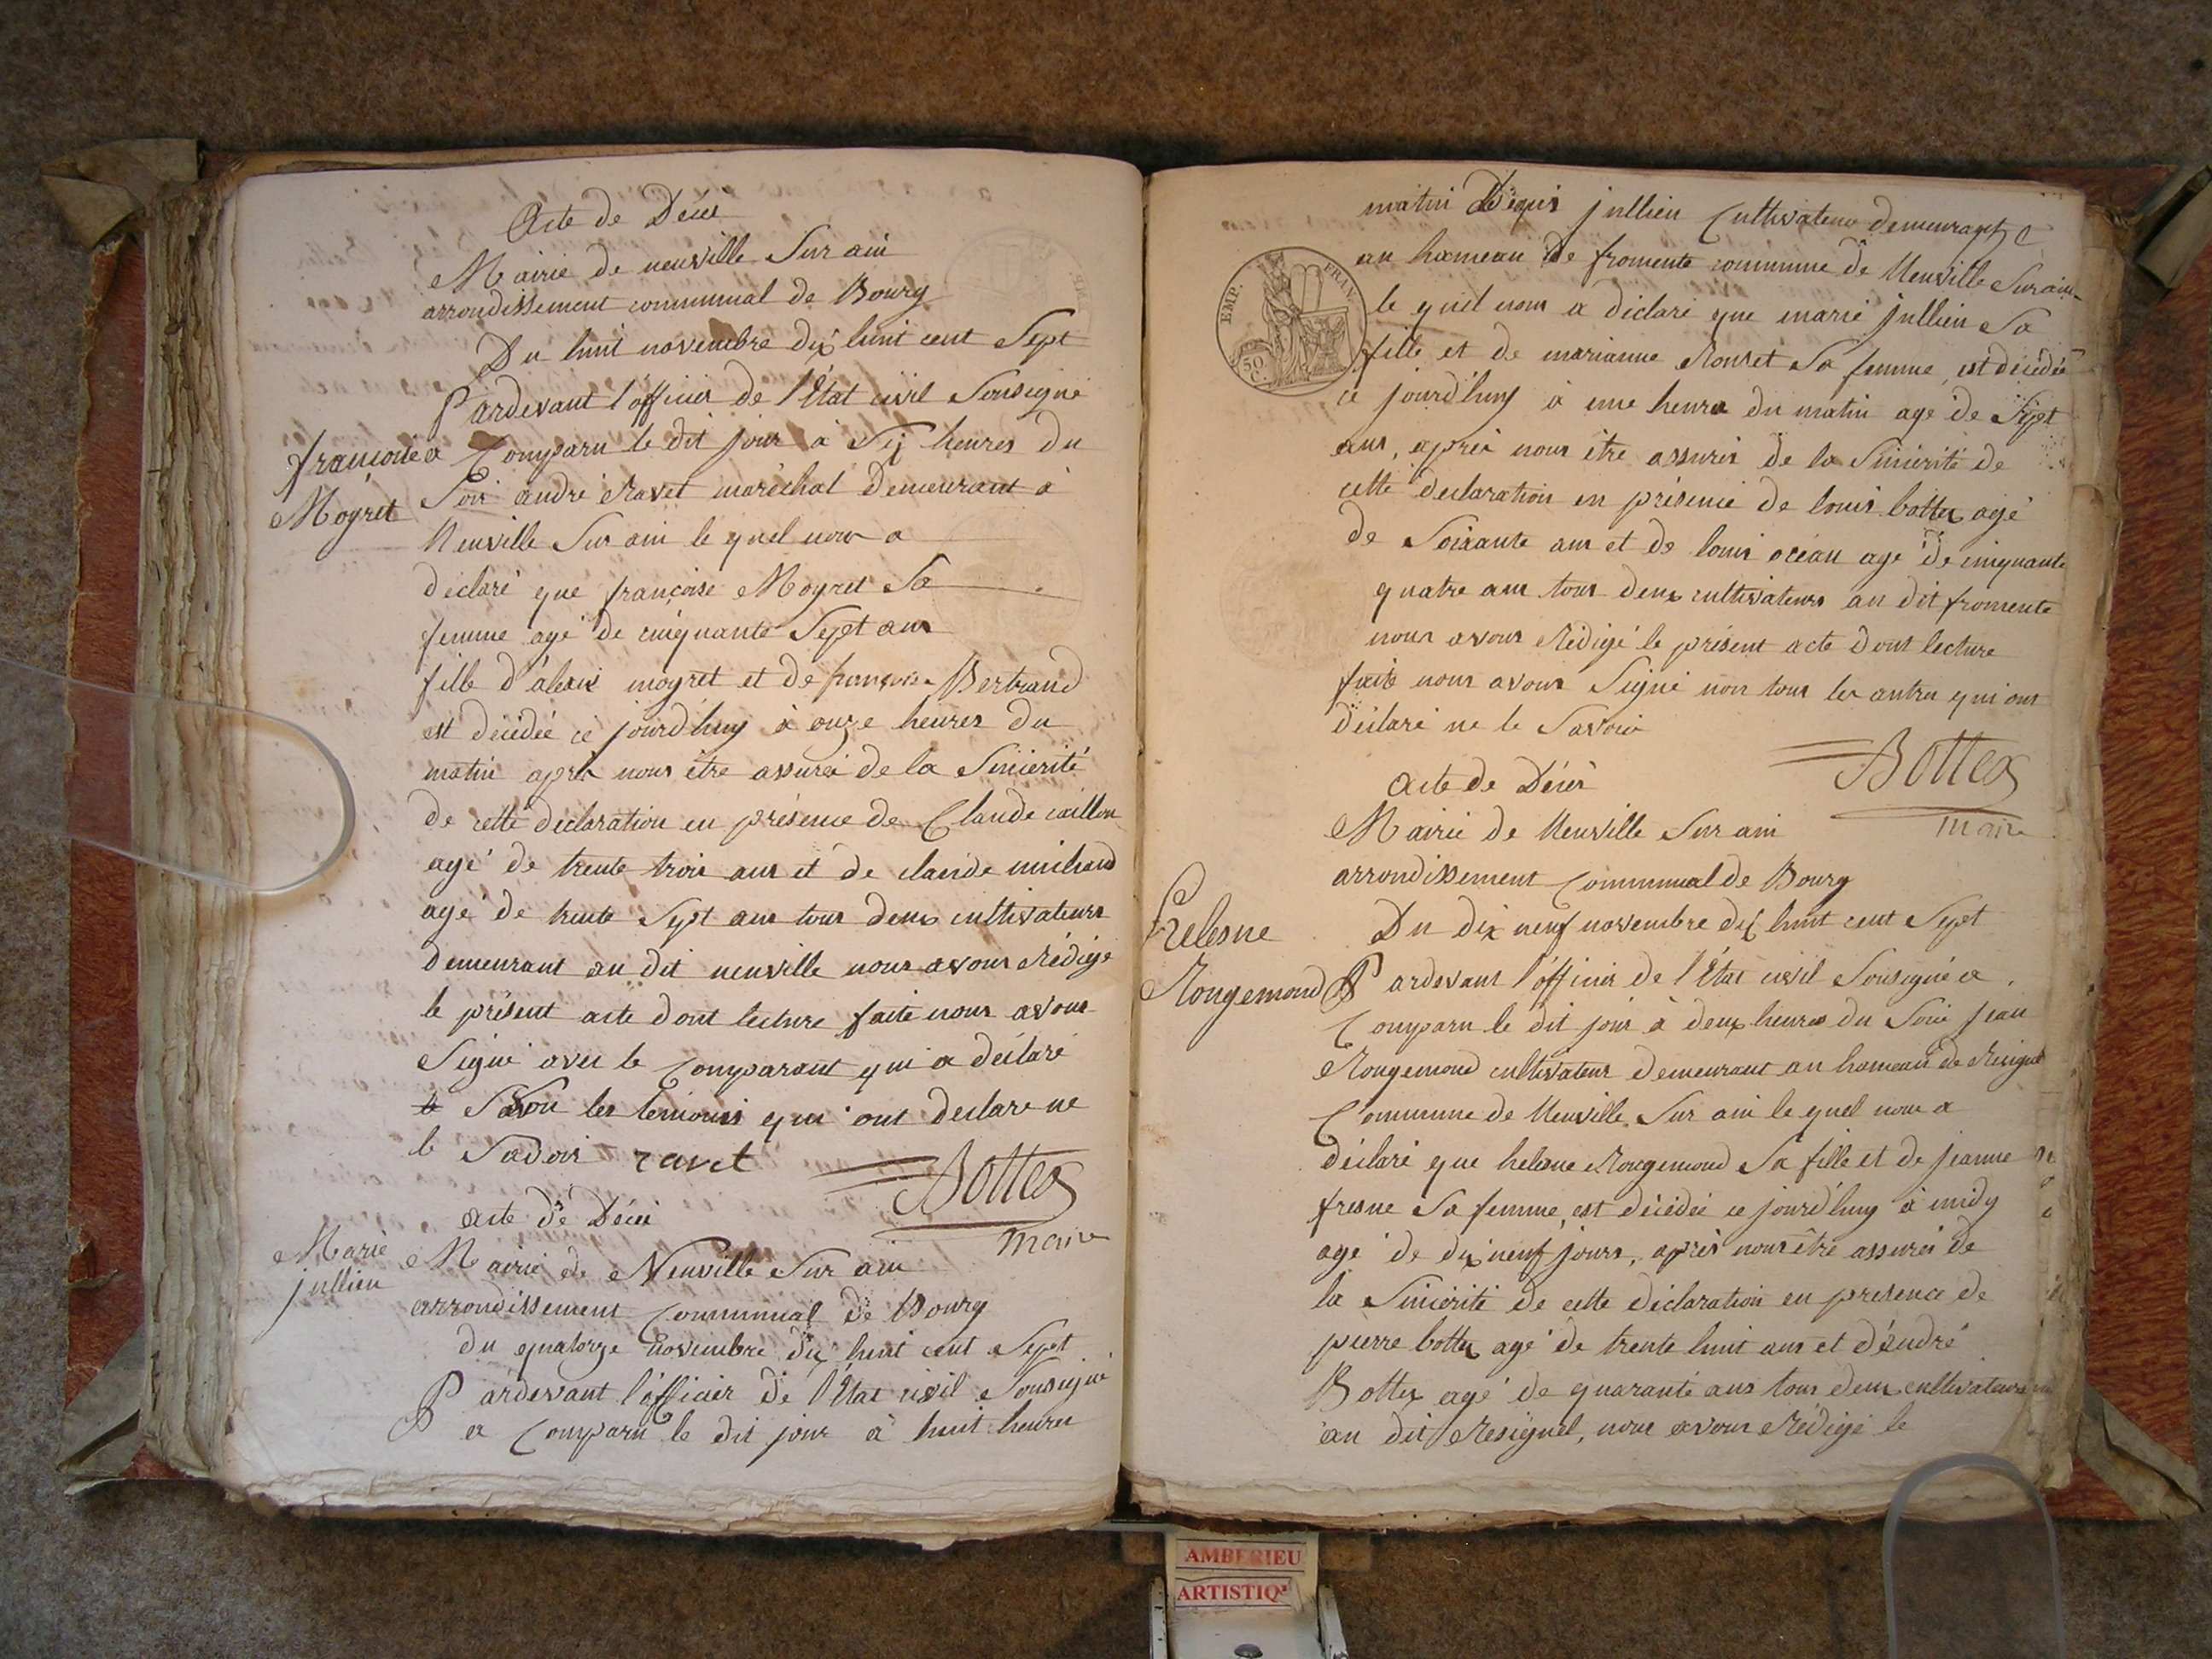 Acte de Décès
Mairie de neuville Sur ain
arrondissement communal de Bourg
Du huit novembre dix huit cent Sept
Pardevant l'officier de l'État civil Sousigné
françoise
Moyret
a Comparu le dit jour à Six heures du
Soir andré Ravet maréchal demeurant à
Neuville Sur ain le quel nous a
déclaré que françoise Moyret Sa
femme agé de cinquante Sept ans
fille d'alexis moyret et de françoise Bertrand
est décédée ce jourd'huy à onze heures du
matin après nous être assurés de la Sincérité
de cette déclaration en présence de Claude caillon
agé de trente trois ans et de claude michaud
agé de trente Sept ans tous deux cultivateurs
demeurant au dit neuville nous avons rédigé
le présent acte dont lecture faite nous avons
Signé avec le Comparant qui a déclaré
le Savoir les temoins qui ont declare ne
le Savoir ravet
Bottex
maire
acte de Décès
Marie
jullien
Mairie de Neuville Sur ain
arrondissement Communal de Bourg
du quatorze novembre dix huit cent Sept
Pardevant l'officier de l'État civil Sousigné
a Comparu le dit jour à huit heures
matin jullien Cultivateur demeurant
au hameau de fromente commune de Neuville Sur ain
le quel nous a déclaré que marie jullien Sa
fille et de marianne Rouset Sa femme, est décédée
ce jourd'huy à une heure du matin agé de Sept
ans, après nous être assurés de la Sincérité de
cette declaration en présence de louis bottex agé
de Soixante ans et de louis océan agé de cinquante
quatre ans tous deux cultivateurs au dit fromente
nous avons Rédigé le présent acte dont lecture
faite nous avons Signé non tous les autres qui ont
déclaré ne le Savoir
Bottex
maire
EMP. FRAN.
50 C.
Acte de Décès
Mairie de Neuville Sur ain
arrondissement Communal de Bourg
Helesne
Rougemond
Du dix neuf novembre dix huit cent Sept
Pardevant l'officier de l'État civil Sousigné a
Comparu le dit jour à deux heures du Soir jean
Rougemond cultivateur demeurant au hameau de Résignel
Commune de Neuville Sur ain le quel nous a
déclaré que helesne Rougemond Sa fille et de jeanne
fresne Sa femme, est décédée ce jourd'huy à midy
agé de dix neuf jours, après nous être assurés de
la Sincérité de cette déclaration en presence de
pierre bottex agé de trente huit ans et d'andré
Bottex agé de quarante ans tous deux cultivateurs
au dit Résignel, nous avons Rédigé le
AMBERIEU
ARTISTIQUE